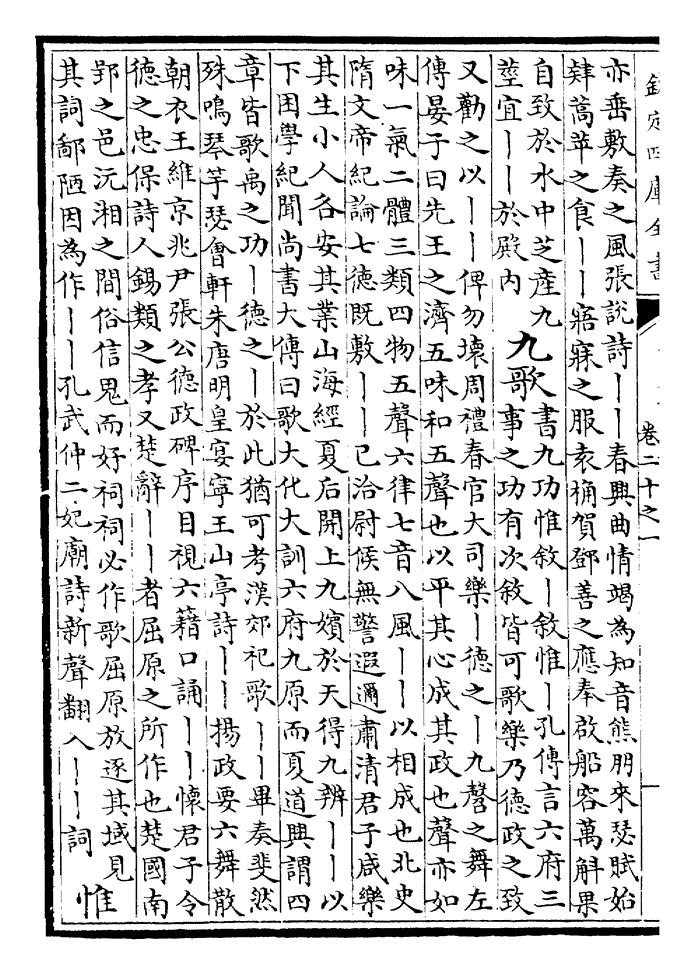 欽定四庫全書
卷二十之一
亦垂敷奏之風張說詩丨丨春興曲情竭為知音熊朋來瑟賦始
肄蒿苹之食丨丨寤寐之服袁桷賀鄧善之應奉啟船容萬斛果
自致於水中芝產九
莖宜丨丨於殿内
九歌
書九功惟敘丨敘惟丨孔傳言六府三
事之功有次敘皆可歌樂乃德政之致
又勸之以丨丨俾勿壞周禮春官大司樂丨德之丨九磬之舞左
傳晏子曰先王之濟五味和五聲也以平其心成其政也聲亦如
味一氣二體三類四物五聲六律七音八風丨丨以相成也北史
隋文帝紀論七德既敷丨丨已洽尉候無警遐邇肅清君子咸樂
其生小人各安其業山海經夏后開上九嬪於天得九辨丨丨以
下困學紀聞尚書大傳曰歌大化大訓六府九原而夏道興謂四
章皆歌禹之功丨德之丨於此猶可考漢郊祀歌丨丨畢奏斐然
殊鳴琴竽瑟會軒朱唐明皇宴寧王山亭詩丨丨揚政要六舞散
朝衣王維京兆尹張公德政碑序目視六藉口誦丨丨懷君子令
德之忠保詩人錫類之孝又楚辭丨丨者屈原之所作也楚國南
郢之邑沅湘之間俗信鬼而好祠祠必作歌屈原放逐其域見
其詞鄙陋因為作丨丨孔武仲二妃廟詩新聲翻入丨丨詞
惟